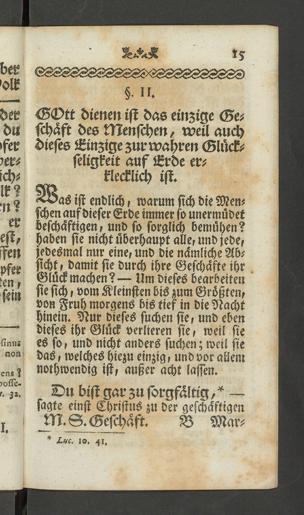 15
§. II.
GOtt dienen ist das einzige Ge-
schäft des Menschen, weil auch
dieses Einzige zur wahren Glück-
seligkeit auf Erde er-
klecklich ist.
Was ist endlich, warum sich die Men-
schen auf dieser Erde immer so unermüdet
beschäftigen, und so sorglich bemühen?
haben sie nicht überhaupt alle, und jede,
jedesmal nur eine, und die nämliche Ab-
sicht, damit sie durch ihre Geschäfte ihr
Glück machen? — Um dieses bearbeiten
sie sich, vom Kleinsten bis zum Größten,
von Früh morgens bis tief in die Nacht
hinein. Nur dieses suchen sie, und eben
dieses ihr Glück verlieren sie, weil sie
es so, und nicht anders suchen; weil sie
das, welches hiezu einzig, und vor allem
nothwendig ist, außer acht lassen.
Du bist gar zu sorgfältig, * —
sagte einst Christus zu der geschäftigen
M. S. Geschäft. B Mar-
* Luc. 10. 41.